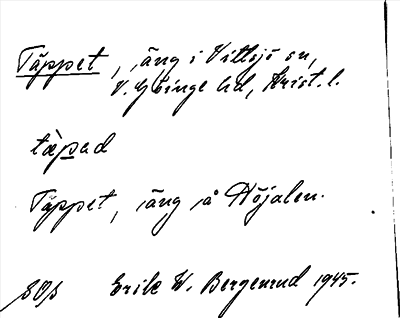 Täppet, äng i Vittsjö sn,
V. Göinge hd, Krist. l.
tàpad
Täppet, äng å Höjalen.
Erik W. Bergenrud 1945.